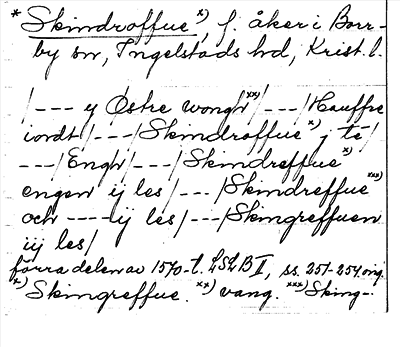 * Skindroffue x), f. åker i Borr-
by sn, Ingelstads hd, Krist. l.
/--- y Östre wongh xx)/---/Hauffre
iordt/---/Skindroffue x) j te/
---/Engh/---/Skindreffue x)
engen ij les/---/Skindreffue xxx)
och ---- ij les/---/Skingreffuen
iij les/
förra delen av 1570-t. LSLB II, ss. 251-254 orig.
x) Skingreffue. xx) vang. xxx) Sking-.